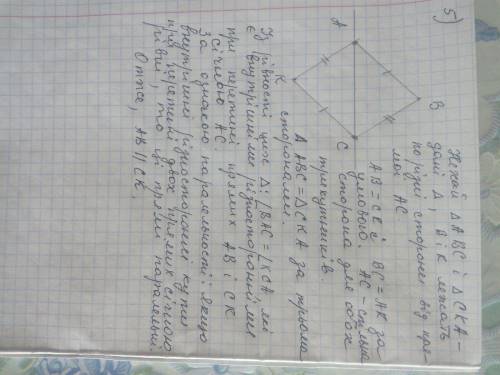 5)
A
B
C
K
Нехай ΔABC і ΔCKA -
дані Δ, B і K лежать
по різні сторони від пря-
мої AC.
AB = CK і BC = AK за
умовою. AC - спільна
сторона для обох
трикутників.
Δ ABC = Δ CKA за трьома
сторонами.
Із рівності цих Δ: ∠BAC = ∠KCA, які
є внутрішніми різносторонніми
при перетині прямих AB і CK
січною AC.
За ознакою паралельності: якщо
внутрішні різносторонні кути
при перетині двох прямих січною
рівні, то ці прямі паралельні.
Отже, AB || CK.